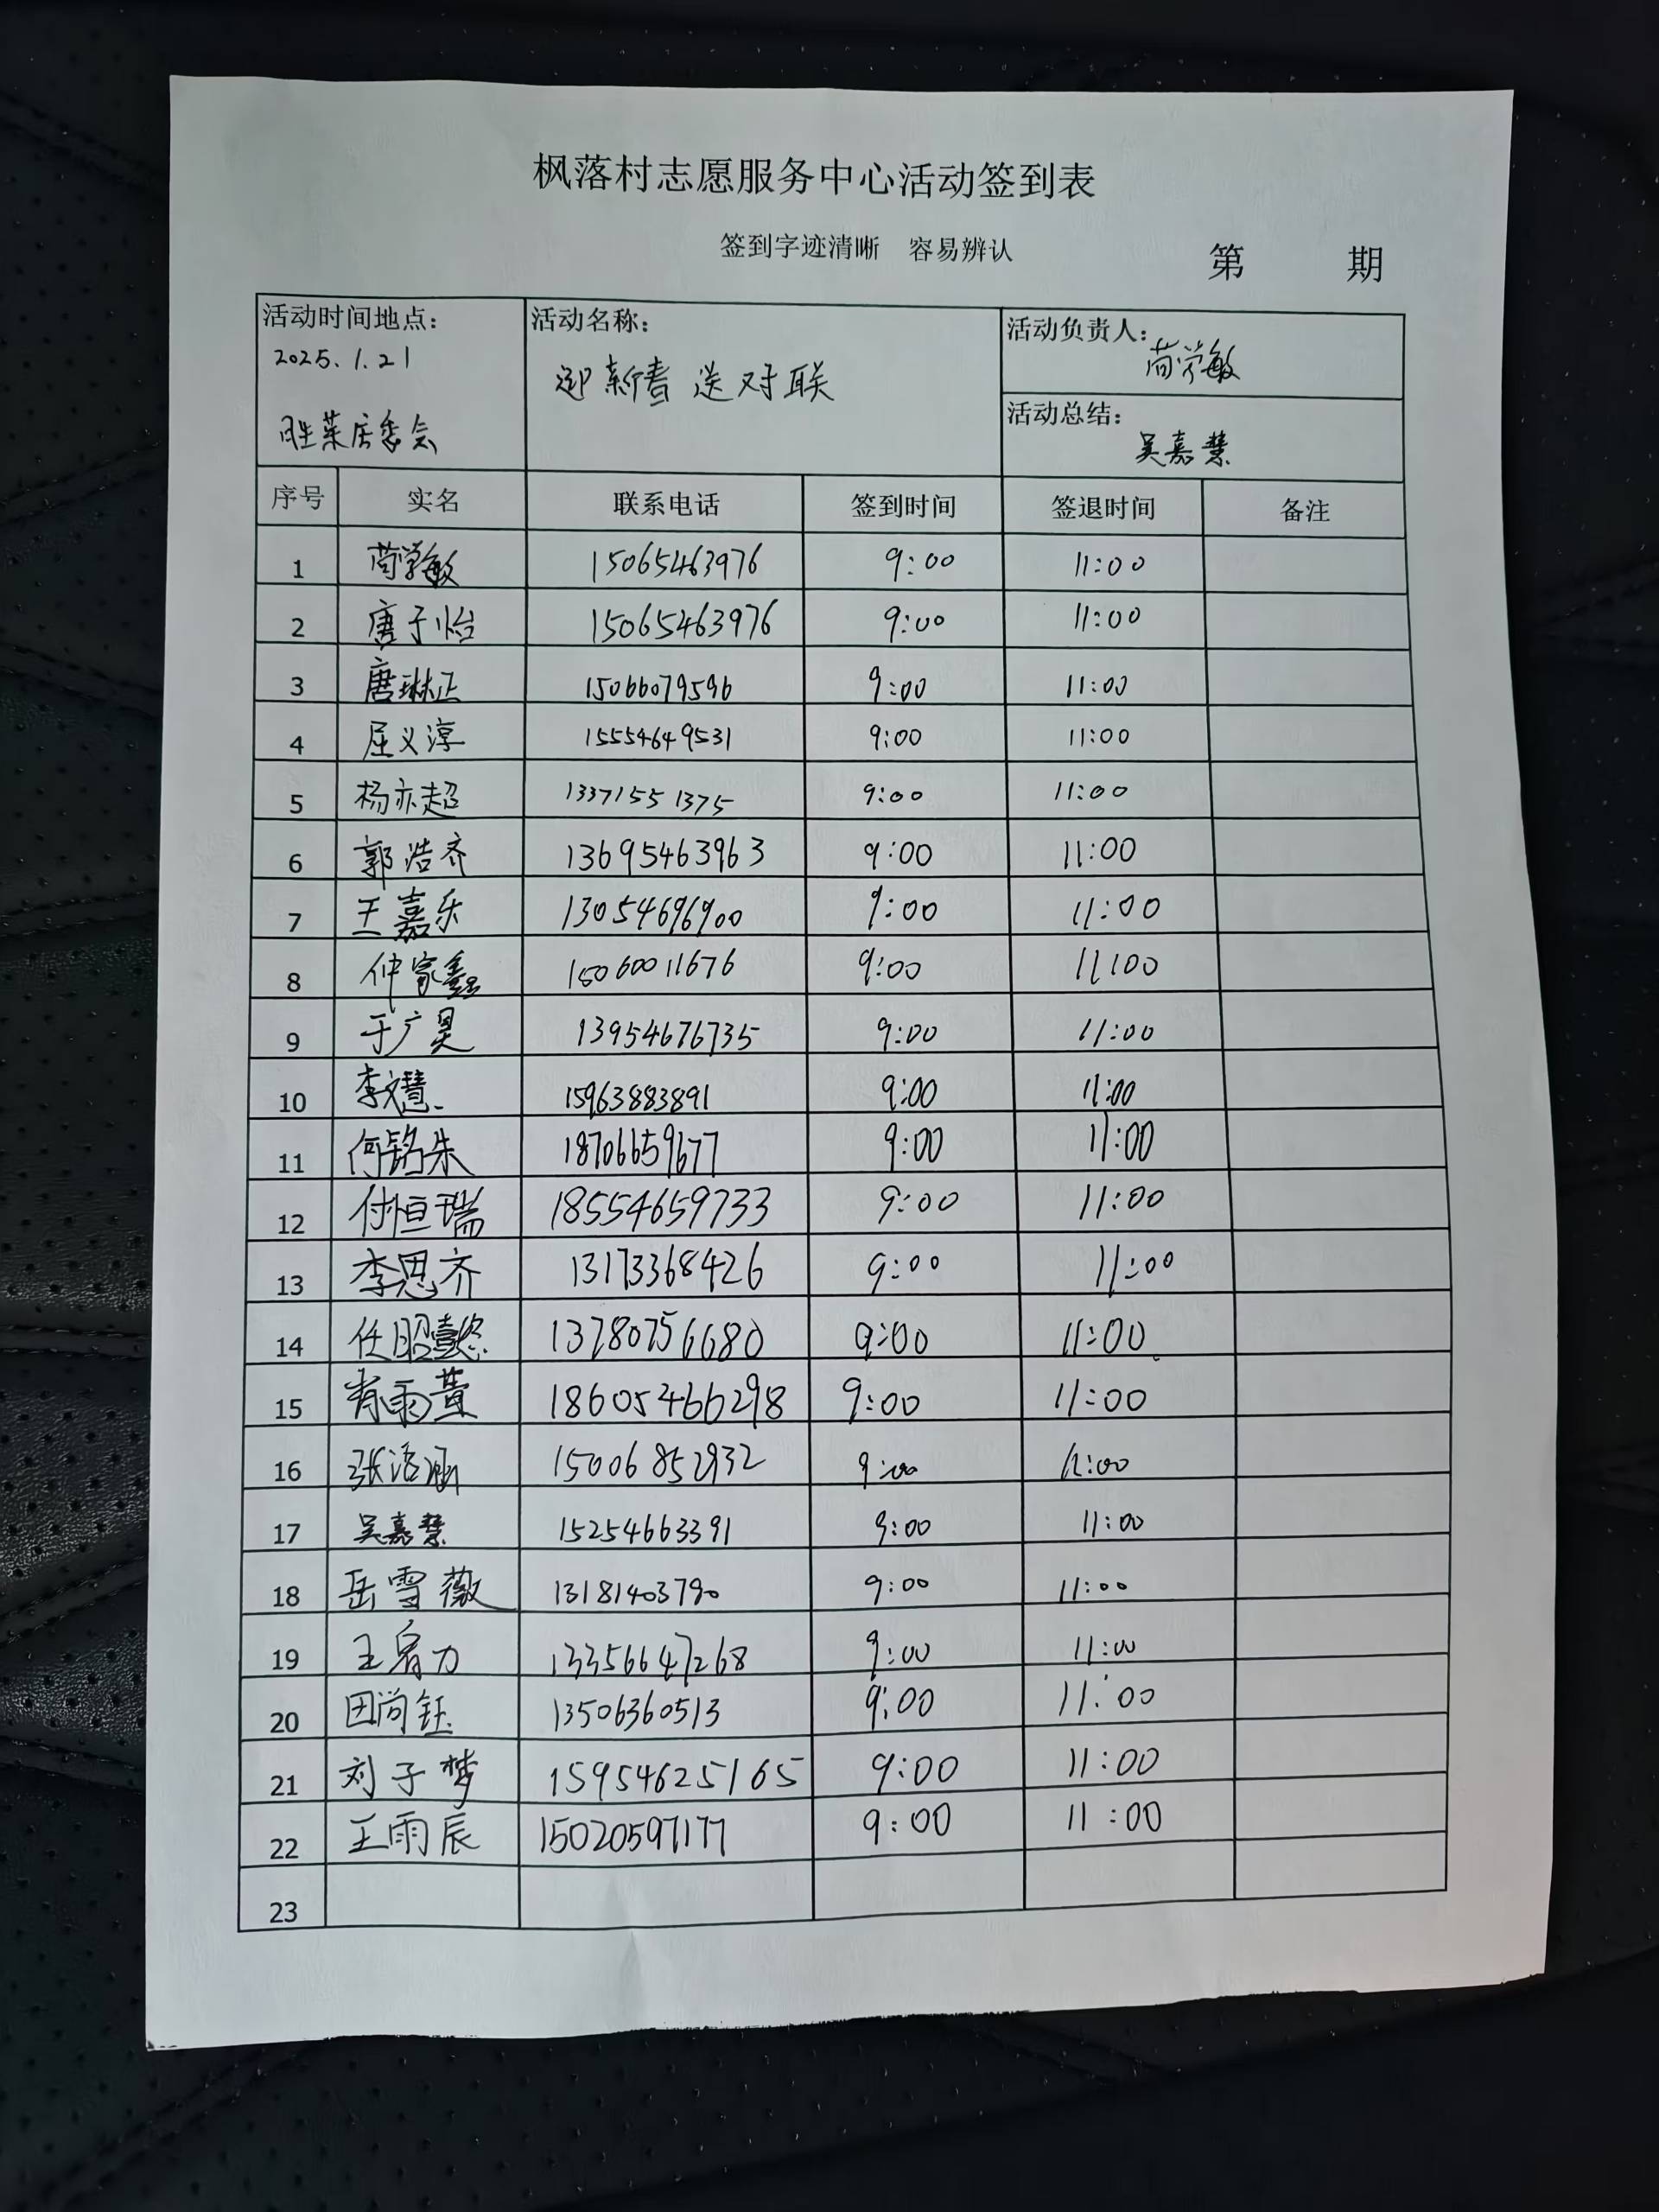 枫落村志愿服务中心活动签到表
签到字迹清晰 容易辨认
第 期
活动时间地点：
2025.1.21
胜莱居委会
活动名称：
迎新春 送对联
活动负责人：
苘学敏
活动总结：
吴嘉慧
序号 实名 联系电话 签到时间 签退时间 备注
1 苘学敏 15065463976 9:00 11:00
2 唐子怡 15065463976 9:00 11:00
3 唐琳正 15066079596 9:00 11:00
4 屈义淳 15554649531 9:00 11:00
5 杨亦超 13371551375 9:00 11:00
6 郭浩齐 13695463963 9:00 11:00
7 王嘉乐 13054696900 9:00 11:00
8 仲家鑫 15060011676 9:00 11:00
9 于广昊 13954676735 9:00 11:00
10 李文慧 15963883891 9:00 11:00
11 何铭朱 18706659677 9:00 11:00
12 付恒瑞 18554659733 9:00 11:00
13 李思齐 13173368426 9:00 11:00
14 任昭懿 13780756680 9:00 11:00
15 肖雨萱 18605466298 9:00 11:00
16 张洛涵 15006852932 9:00 11:00
17 吴嘉慧 15254663391 9:00 11:00
18 岳雪薇 13181403790 9:00 11:00
19 13356647268 9:00 11:00
20 田尚钰 13506360513 9:00 11:00
21 刘子梦 15954625165 9:00 11:00
22 王雨辰 15020597177 9:00 11:00
23